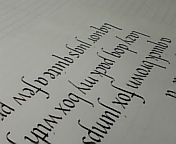 a quick brown fox jumps
lazy dog pack my box with
liquor jugs quite a few